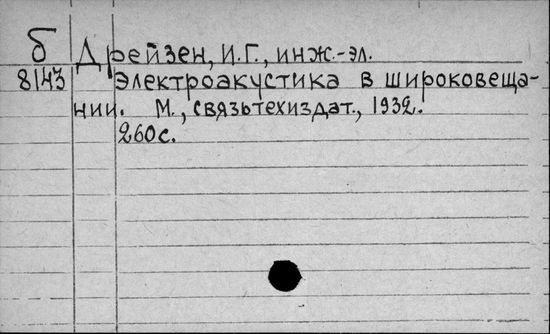 Б Дрейзен, И.Г., инж.-эл.
8143 Электроакустика в широковеща-
нии. М., связьтехиздат., 1932.
260с.